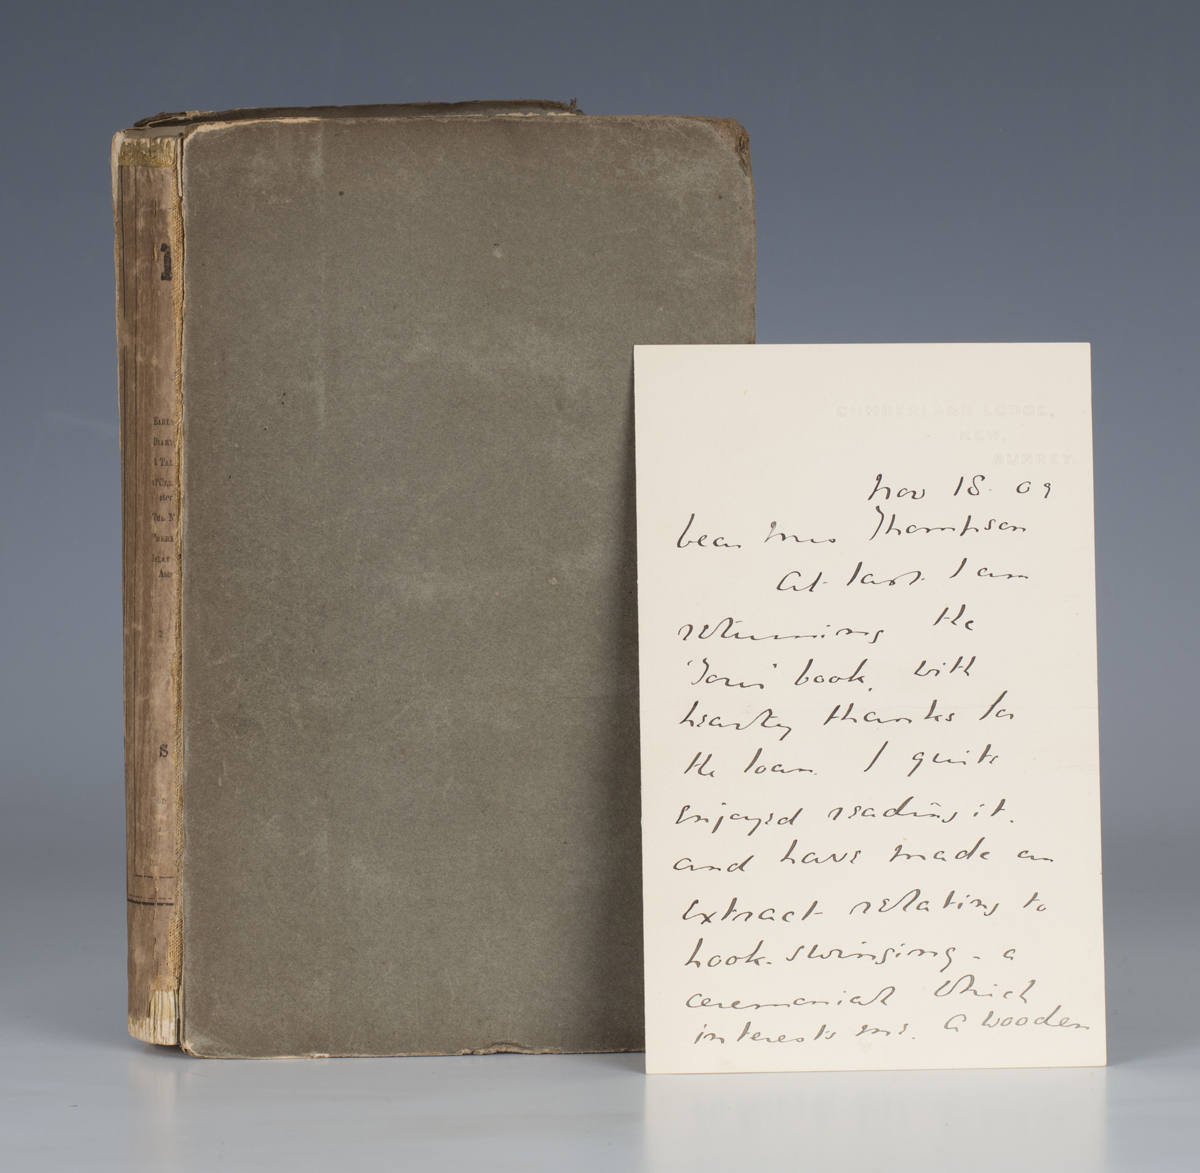 S
CUMBERLAND LODGE,
KEW,
SURREY.
Nov 18. 09
Dear Mrs Thompson
At last I am
returning the
book, with
hearty thanks for
the loan. I quite
enjoyed reading it.
and have made an
extract relating to
hook-swinging - a
ceremonial which
interests me. A wooden